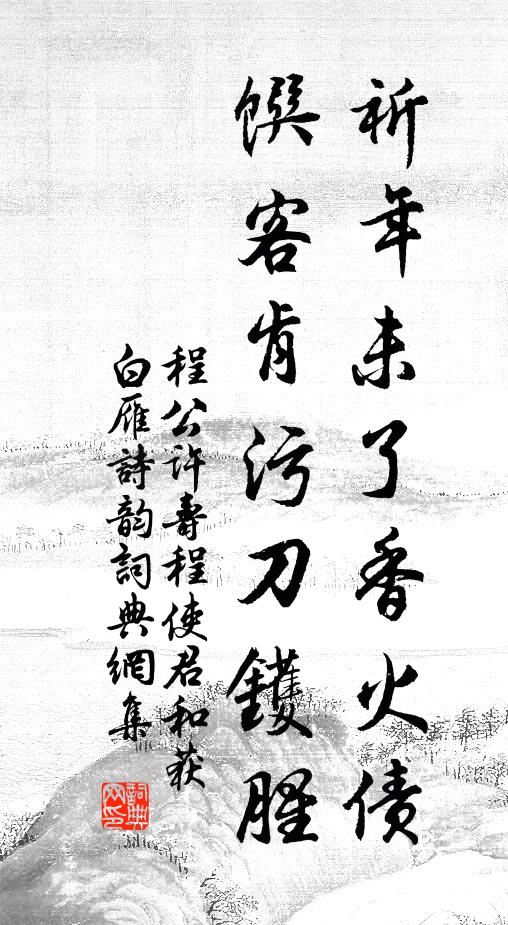 祈年未了香火债
馔客肯污刀鑊腥
程公许寿程使君和获
白雁詩韵詞典網集
詞典网印